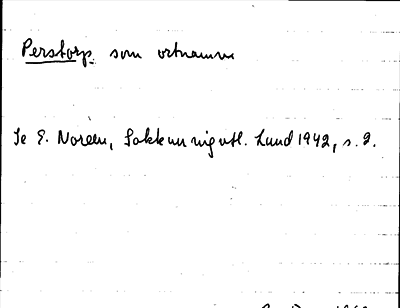 Perstorp som ortnamn
Se E. Noreen, Sakkunnigutl. Lund 1942, s. 9.